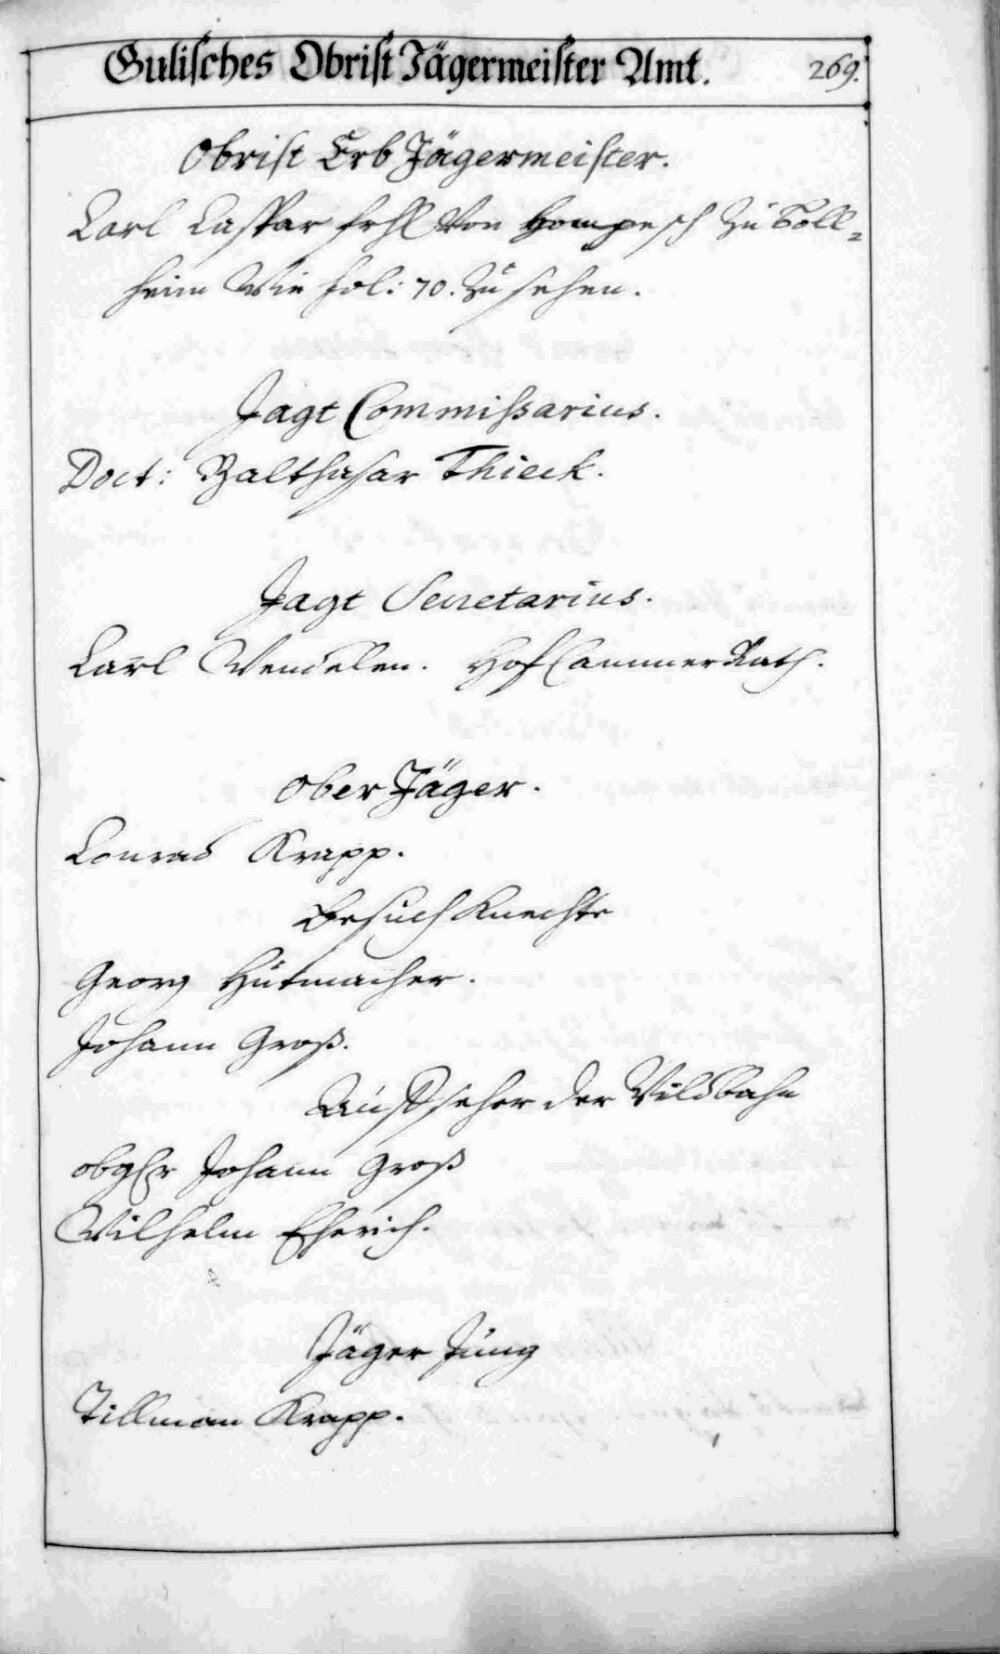 Gulisches Obrist Jägermeister Amt. 269.
Obrist Erb Jägermeister.
Carl Caspar frhl von Hompesch zu Boll=
heim wie fol: 70. zu sehen.
Jagt Commißarius.
Doct: Balthasar Thieck.
Jagt Secretarius.
Carl Wendelen. Hof Cammer Rath.
Ober Jäger.
Conrad Krapp.
Besuch Knechte
Georg Hutmacher.
Johann Groß.
Auffseher der Wildbahn
obgr Johann Groß
Wilhelm Eherich.
Jäger Jung
Tillman Krapp.